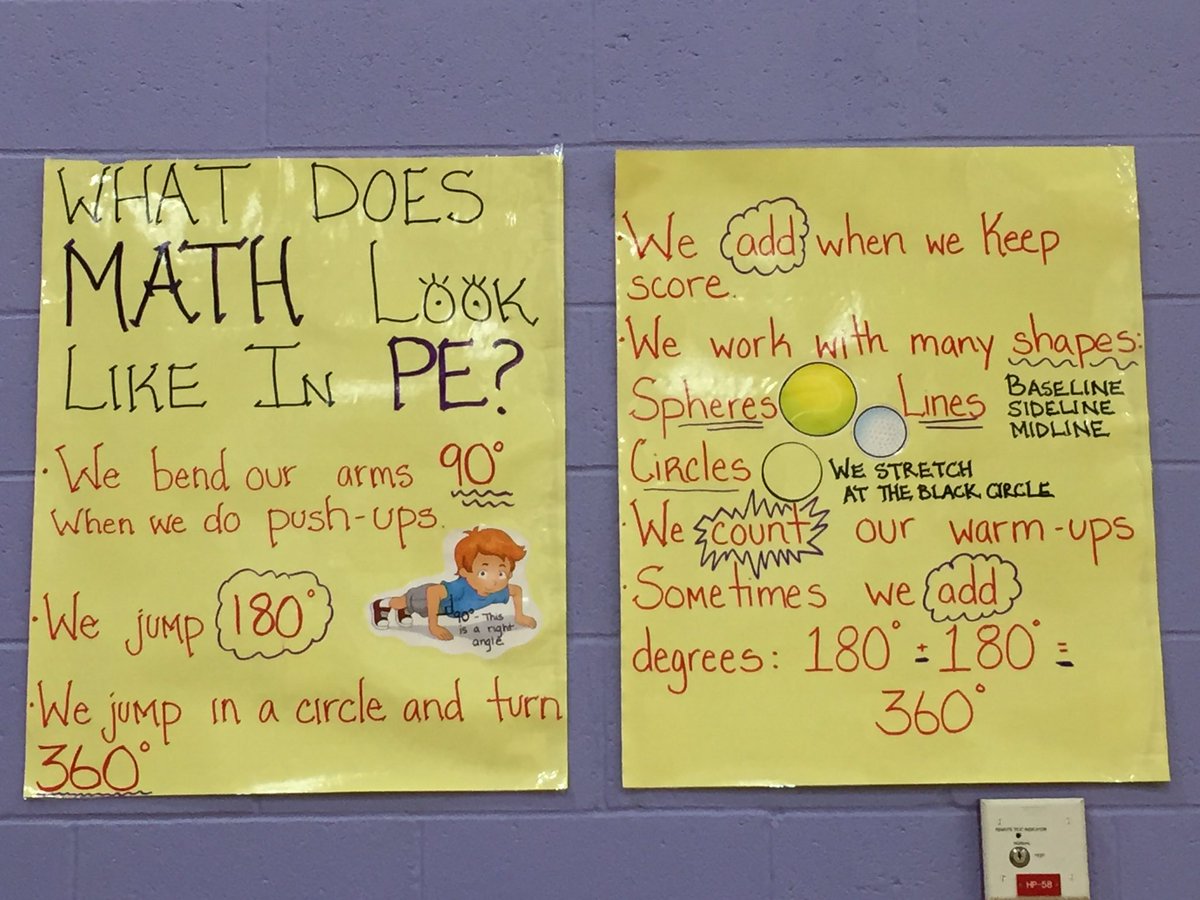 WHAT DOES
MATH LOOK
LIKE IN PE?
· We bend our arms 90°
When we do push-ups.
90° - This
is a right
angle
· We jump 180°
· We jump in a circle and turn
360°
· We add when we Keep
score.
· We work with many shapes:
Spheres Lines BASELINE
SIDELINE
MIDLINE
Circles WE STRETCH
AT THE BLACK CIRCLE
· We count our warm-ups
· Sometimes we add
degrees: 180° + 180° =
360°
REMOTE TEST INDICATOR
NORMAL
TEST
HP-58